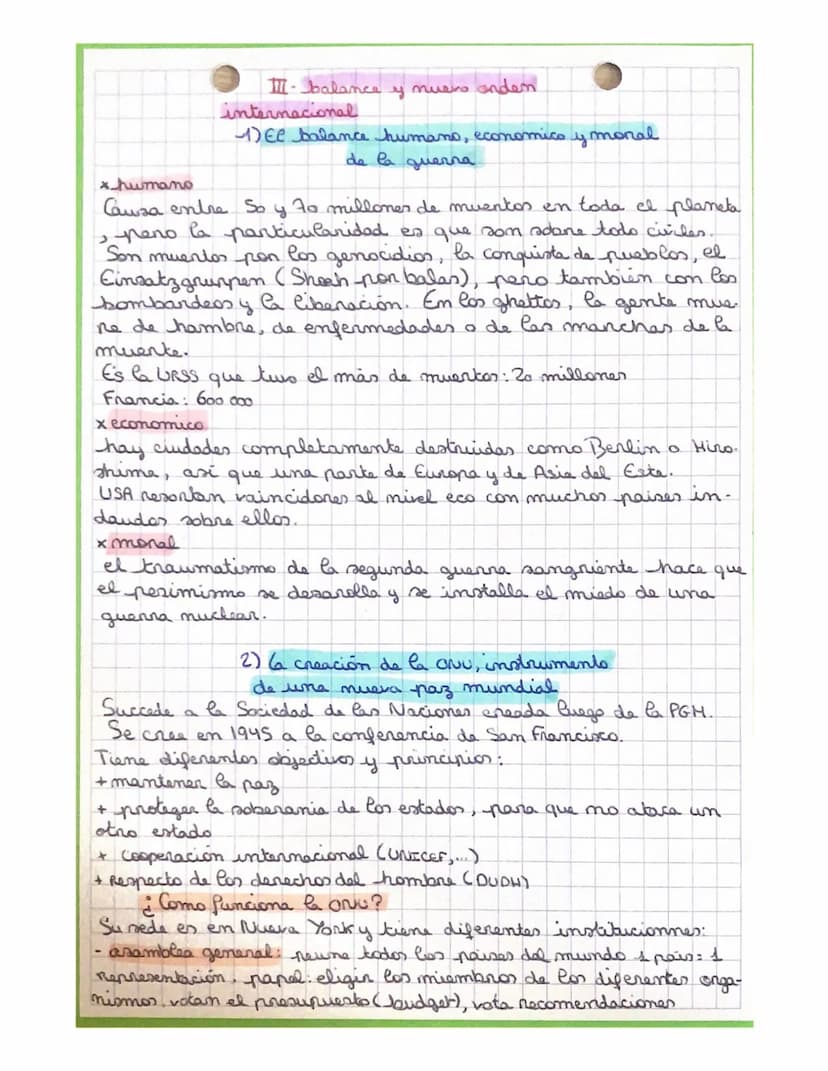 III- balance y nuevo orden
internacional
1) El balance humano, economico y moral
de la guerra
x humano
Causa entre 50 y 70 millones de muertos en toda el planeta
, pero la particularidad es que son sobre todo civiles.
Son muertos por los genocidios, la conquista de pueblos, el
Einsatzgruppen (Shoah por balas), pero también con los
bombardeos y la liberación. En los ghettos, la gente mue-
re de hambre, de enfermedades o de las marchas de la
muerte.
Es la URSS que tuvo el más de muertos: 20 millones
Francia: 600 000
x economico
hay ciudades completamente destruidas como Berlin o Hiro-
shima, asi que una parte de Europa y de Asia del Este.
USA resortan vaincidores al nivel eco con muchos paises in-
daudos sobre ellos.
x moral
el traumatismo de la segunda guerra sangriente hace que
el pesimismo se desarolla y se installa el miedo de una
guerra nuclear.
2) la creación de la ONU, instrumento
de una nueva paz mundial
Succede a la Sociedad de las Naciones creada luego de la PGM.
Se crea en 1945 a la conferencia de San Francisco.
Tiene diferentos objectivos y principios:
+ mantener la paz
+ proteger la soberania de los estados, para que no ataca un
otro estado
+ cooperación internacional (UNICEF,...)
+ Respecto de los derechos del hombre (DUDH)
¿Como funciona la ONU?
Su sede es en Nueva York y tiene diferentes institucionnes:
- asamblea general: reune todos los países del mundo 1 país = 1
representación. papel: eligir los miembros de los diferentes orga-
nismos, votan el presupuesto (budget), vota recomendaciones